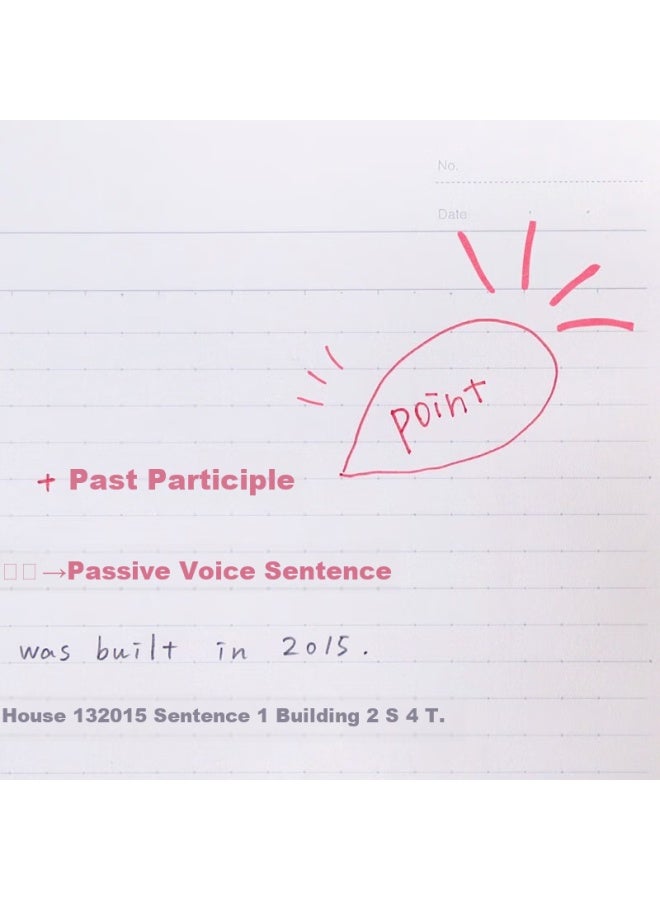 No.
Date
point
+ Past Participle
→Passive Voice Sentence
was built in 2015.
House 132015 Sentence 1 Building 2 S 4 T.